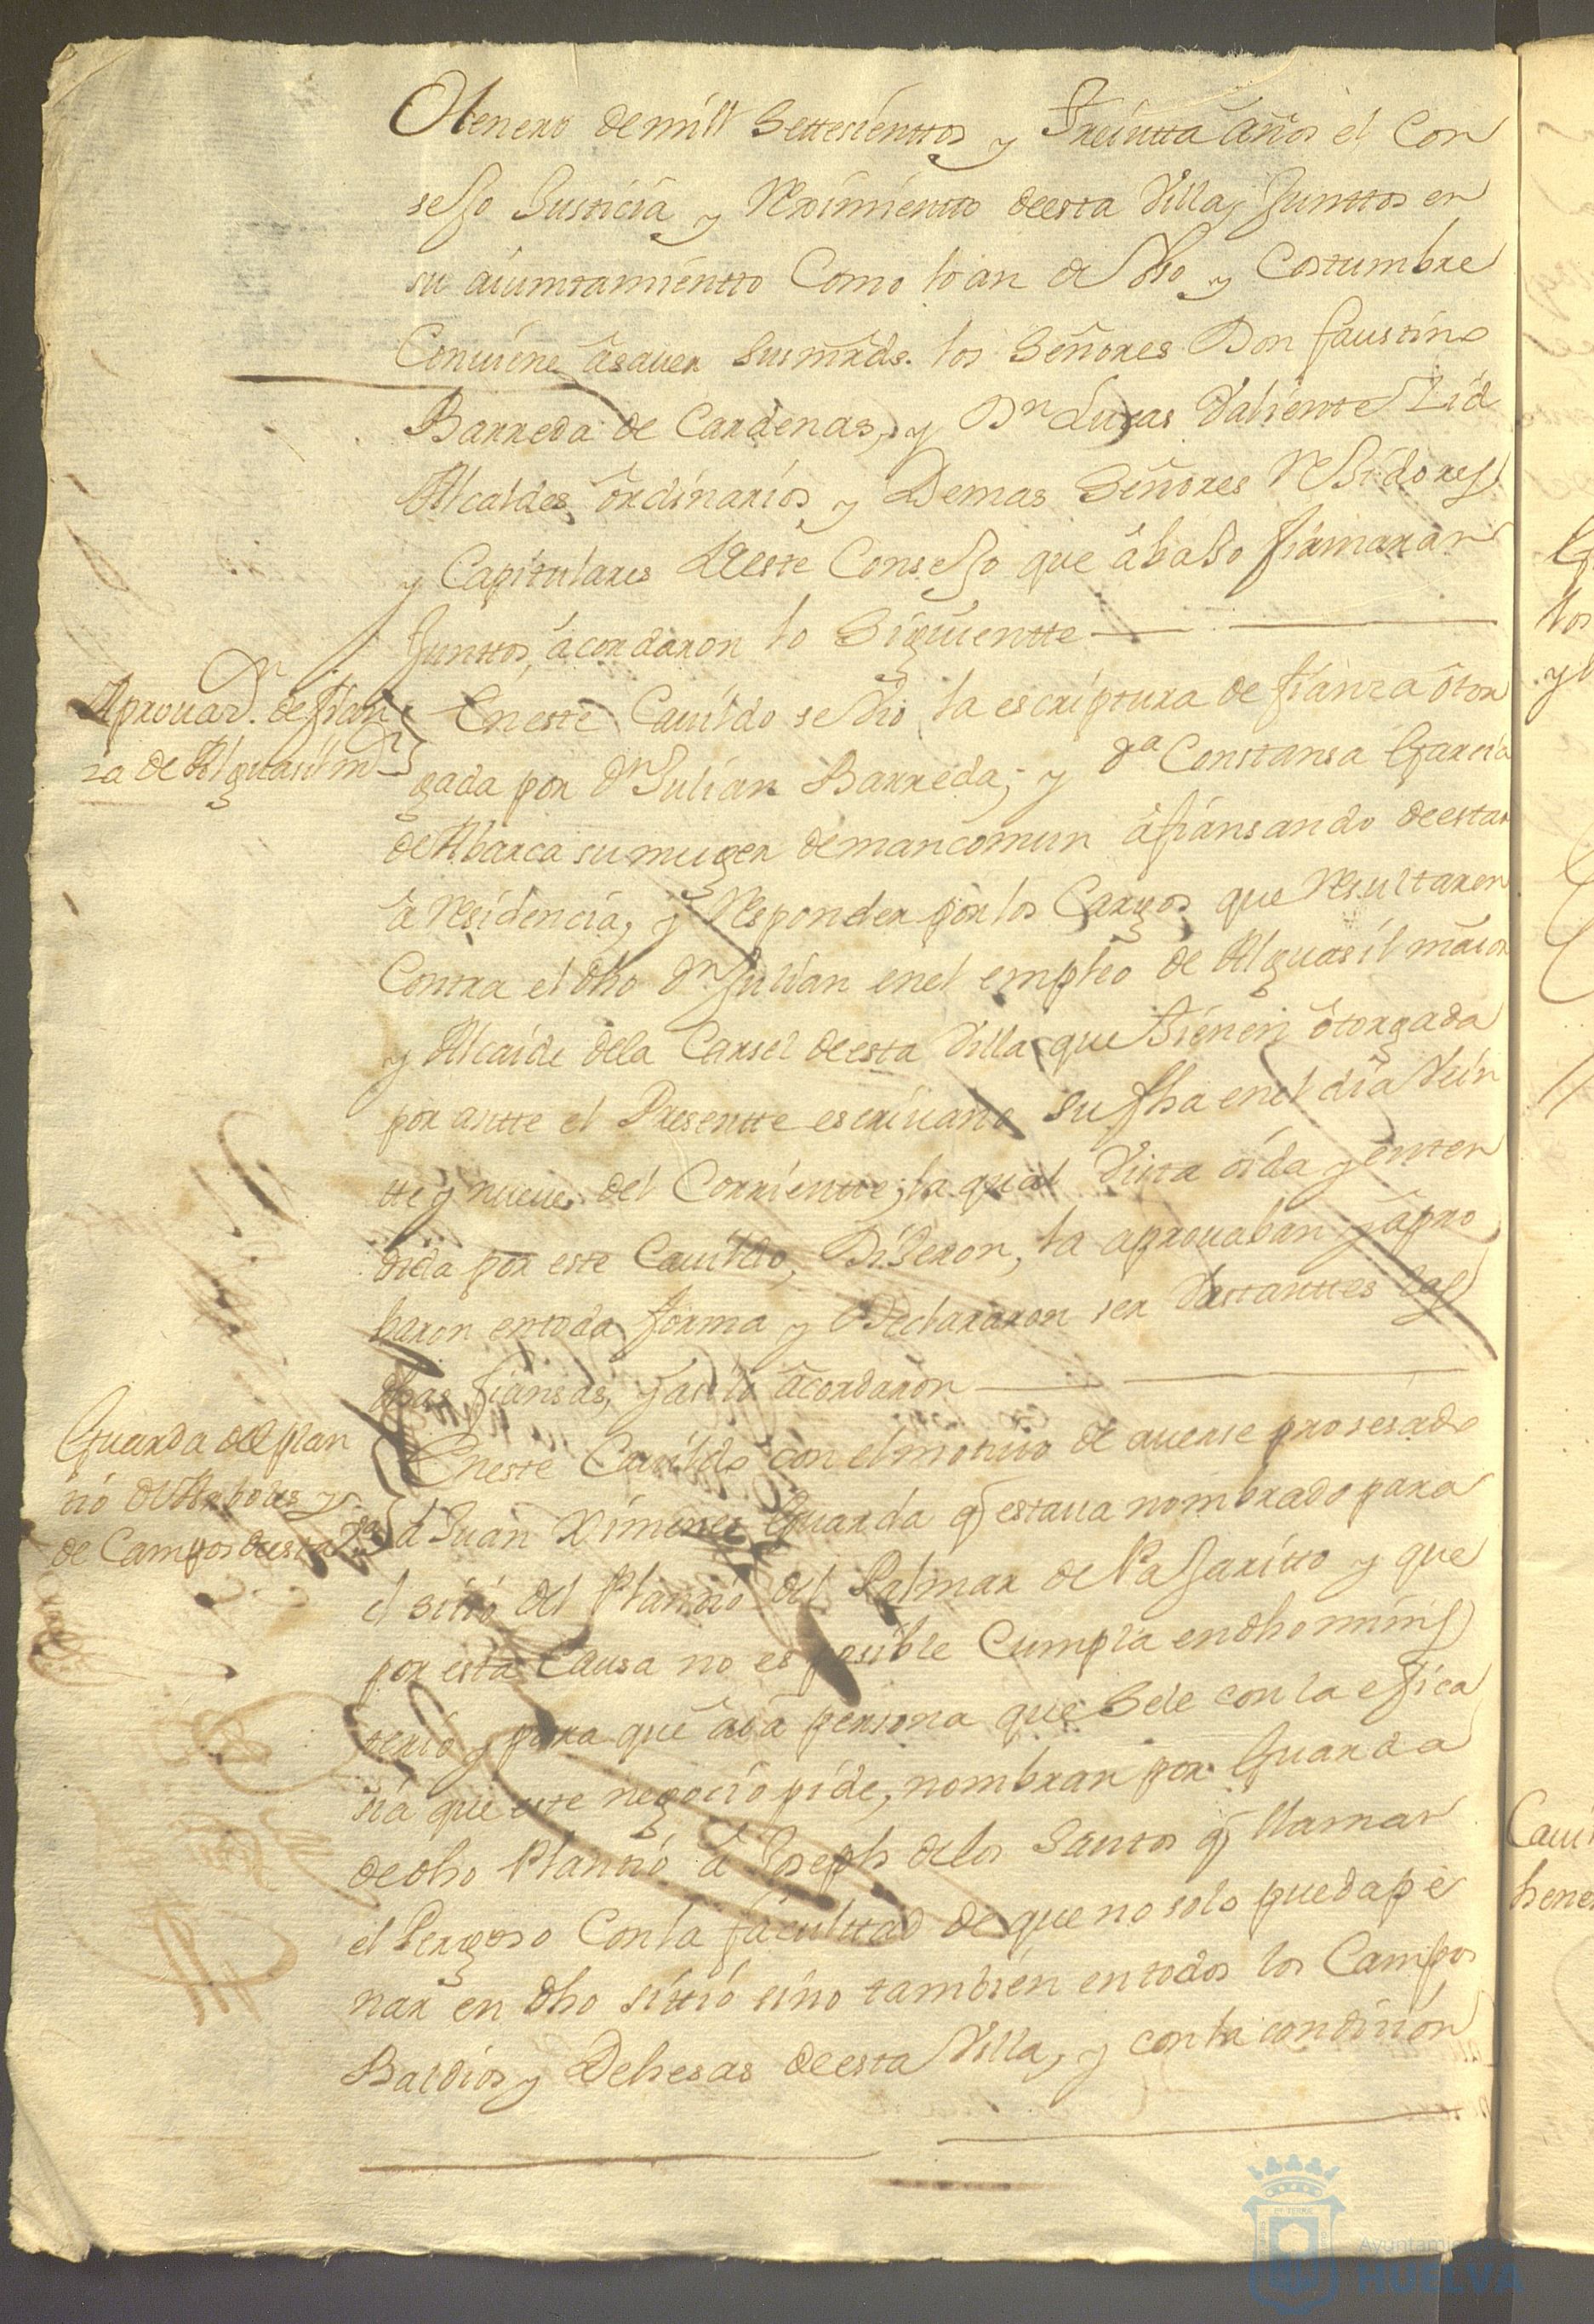 Henero de mill Settesienttos y Treintta años el Con
sejo Justicia y Reximientto deesta Villa, Junttos en
su aiuntamientto Como lo an de Vso y Costumbre
Conuiene âsauer susmrds. los Señores Don faustino
Barreda de Cardenas, y Dn Lucas Valiente Lid
Alcaldes ôrdinarios y Demas Señores Residores
y Capitulares deeste Consejo que âbaso firmaran
Junttos, âcordaron lo Siguientte
Aprouaon. de fian
za de Alguasil mor
Eneste Cauildo se vio la escriptura de fianza ôtor
gada por Dn Julian Barreda; y Da Constansa Garcia
de Abarca su muger demancomun âfiansando deestar
â residencia, y responder por los Cargos que resultaren
Contra el dho Dn Julian enel empleo de Alguasil maior
y Alcaide dela Carsel deesta Villa que tienen ôtorgada
por antte el Presentte escriuano su fha enel dia Vein
tte y nueue del Corrientte; la qual Vista oida y enten
dida por este Cauildo, Diseron, la aprouaban y âpro
baron entoda forma y Declararon ser Vastanttes las
dhas fiansas, y asilo âcordaron
Guarda del plan
tio de Arboles y
de Campos deesta Va
Eneste Cauildo con el motiuo de auerse prosesado
â Juan Ximenes Guarda q estaua nombrado para
el sitio del Planttio del Palmar de Pajaritto y que
por esta Causa no es posible Cumpla en dho minis
terio y para que aia persona que Sele con la efica
sia que este negocio pide, nombran por Guarda
de dho Planttio â Joseph delos Santos q llaman
el Pergoso Con la facultad de que no solo pueda pe
nar en dho sittio sino tambien en todos los Campos
Baldios y Dehesas deesta Villa, y con la condicion
los
Ayuntamie
HUELVA